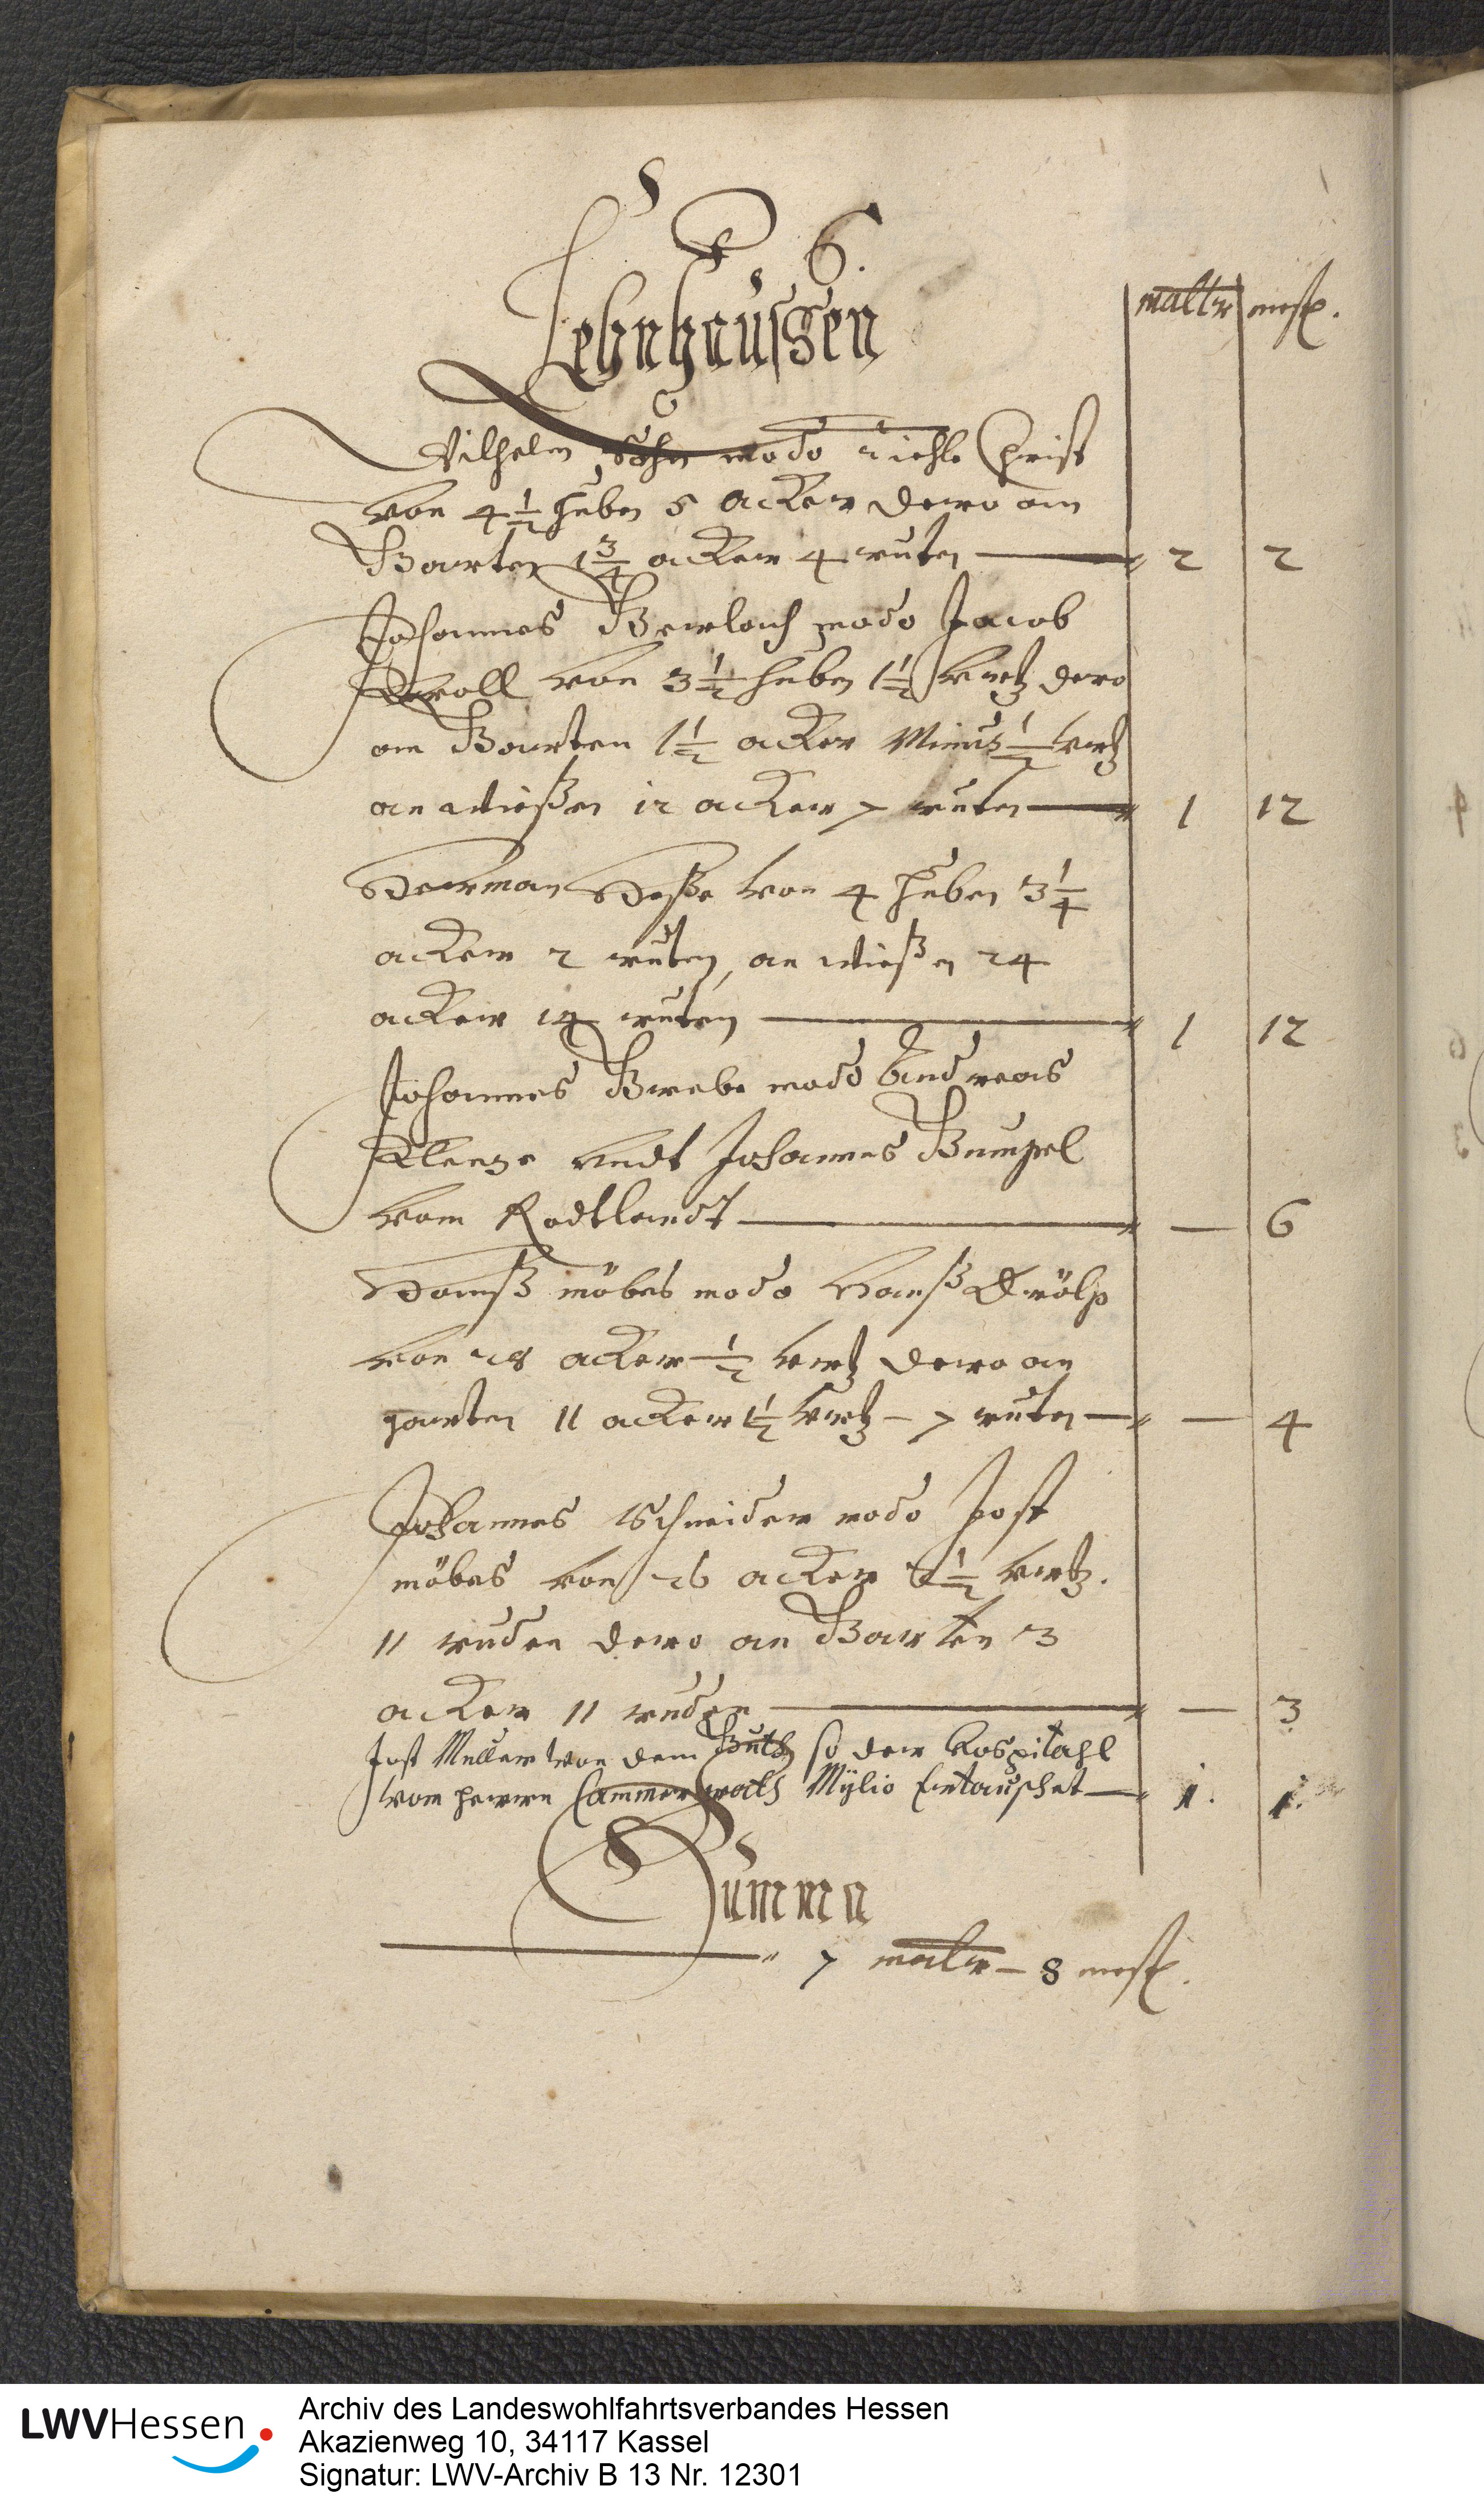 6.
Lehnheussen
maltr mesf.
Wilhelm Böhn modo Riehle Christ
von 4 1/2 huben 5 acker dero am
Garten 1 3/4 acker 4 ruten — 2 2
Johannes Gerlach modo Jacob
Knoll von 3 1/2 huben 1 1/2 vrtz dero
am Garten 1 1/2 acker Minus 1/2 vrtz
an wießen 12 acker 7 ruten — 1 12
Herman Heße von 4 huben 3 1/4
acker 2 ruten, an wießen 24
acker 14 ruten — 1 12
Johannes Grebe modo Andreas
Klenge undt Johannes Gumpel
vom Rodtlandt — — 6
Hanß möbes modo Hanß Drölß
von 28 acker 1/2 vrtz dero an
garten 11 acker 1 1/2 vrtz – 7 ruten — — 4
Johannes Schneider modo Jost
möbes von 26 acker 1/2 vrtz.
11 ruden dero an Garten 3
acker 11 ruden — — 3
Jost Meller von dem Guth so der Hospitahl
vom herrn Cammerrath Mÿlio Ertauschet — 1. 1.
Summa
— 7 maltr – 8 mesf.
LWVHessen
Archiv des Landeswohlfahrtsverbandes Hessen
Akazienweg 10, 34117 Kassel
Signatur: LWV-Archiv B 13 Nr. 12301